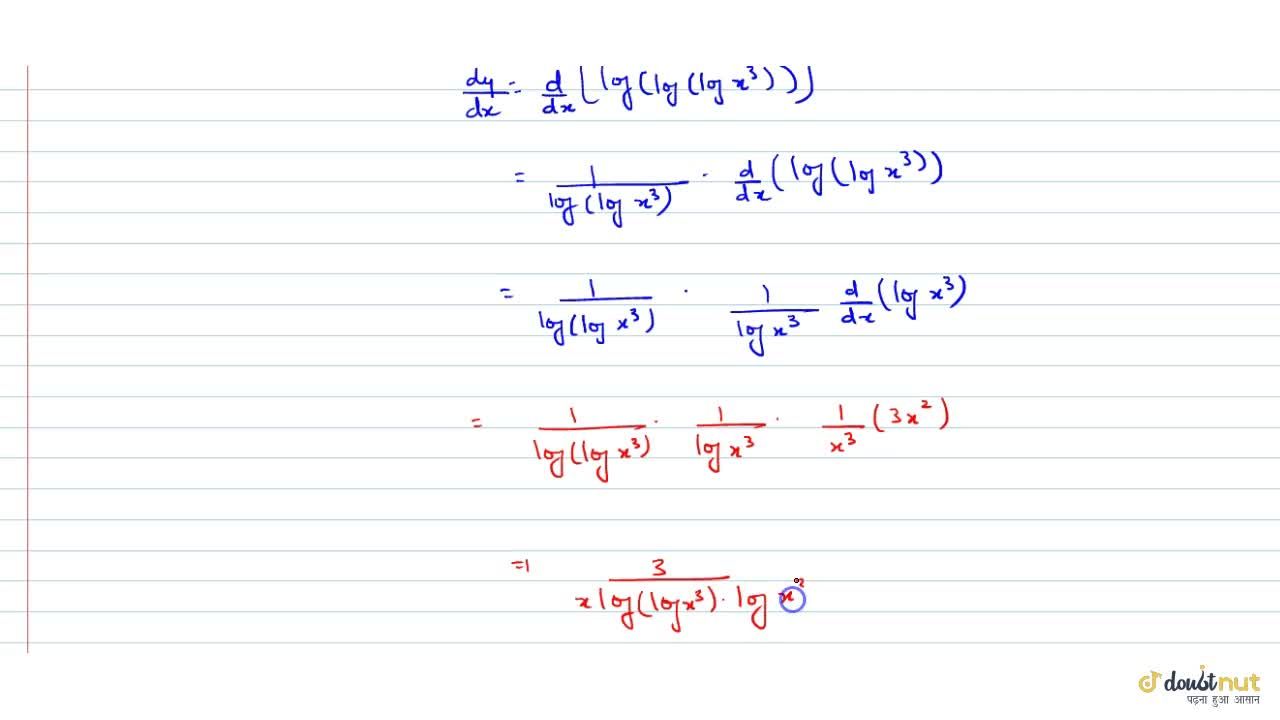 dy/dx = d/dx [log(log(log x³))]
= 1/log(log x³) · d/dx (log(log x³))
= 1/log(log x³) · 1/log x³ d/dx (log x³)
= 1/log(log x³) · 1/log x³ · 1/x³ (3x²)
=1 3/x log(log x³) · log x²
doubtnut
पढ़ना हुआ आसान